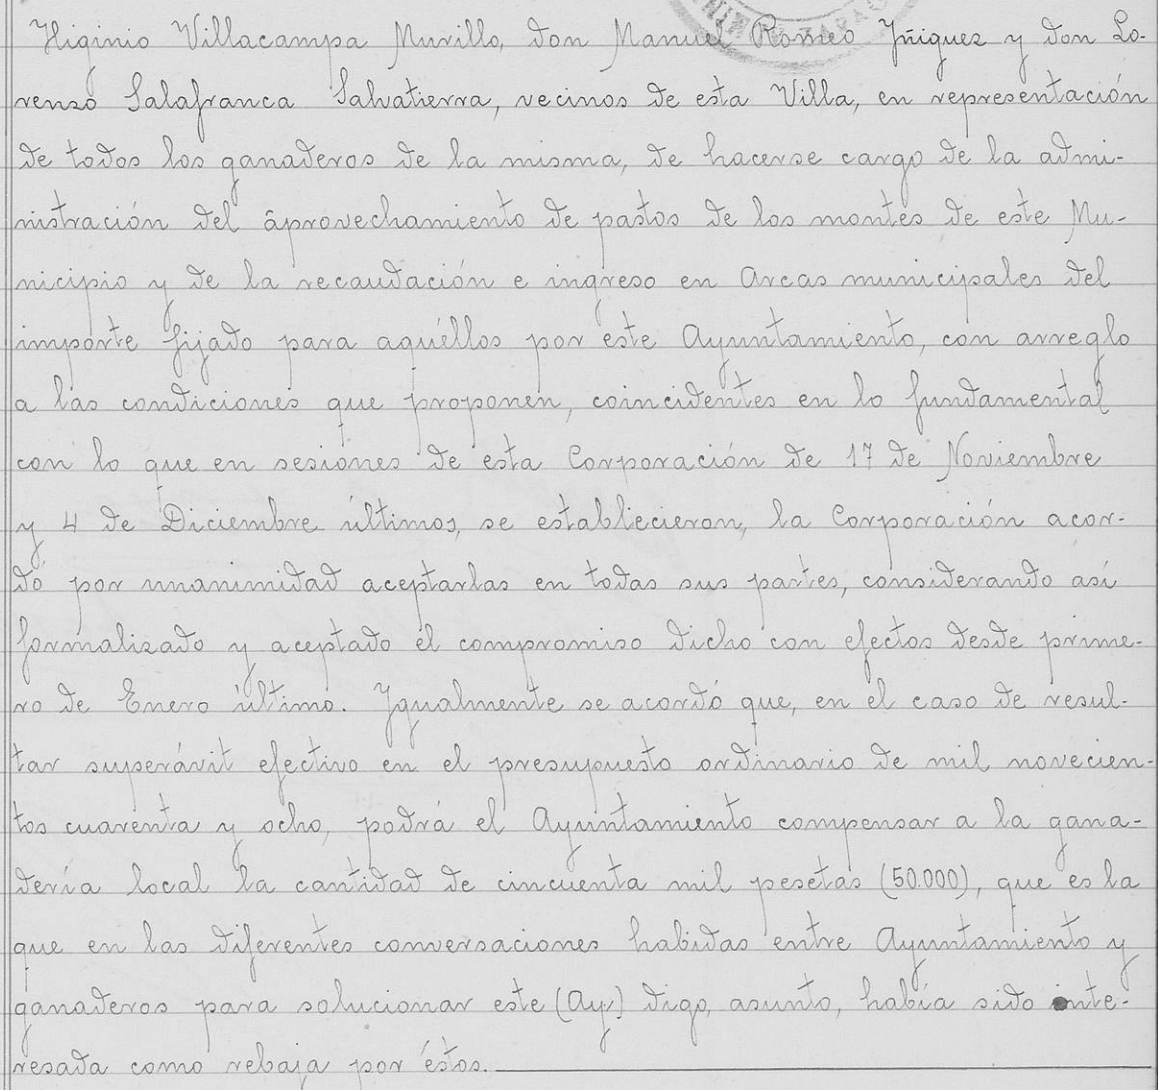 Higinio Villacampa Murillo, don Manuel Romeo Yñiguez y don Lo-
renzo Salafranca Salvatierra, vecinos de esta Villa, en representación
de todos los ganaderos de la misma, de hacerse cargo de la admi-
nistración del aprovechamiento de pastos de los montes de este Mu-
nicipio y de la recaudación e ingreso en Arcas municipales del
importe fijado para aquéllos por este Ayuntamiento, con arreglo
a las condiciones que proponen, coincidentes en lo fundamental
con lo que en sesiones de esta Corporación de 17 de Noviembre
y 4 de Diciembre últimos, se establecieron, la Corporación acor-
dó por unanimidad aceptarlas en todas sus partes, considerando así
formalizado y aceptado el compromiso dicho con efectos desde prime-
ro de Enero último. Ygualmente se acordó que, en el caso de resul-
tar superávit efectivo en el presupuesto ordinario de mil novecien-
tos cuarenta y ocho, podrá el Ayuntamiento compensar a la gana-
dería local la cantidad de cincuenta mil pesetas (50.000), que es la
que en las diferentes conversaciones habidas entre Ayuntamiento y
ganaderos para solucionar este (Ay) digo, asunto, había sido inte-
resada como rebaja por éstos.